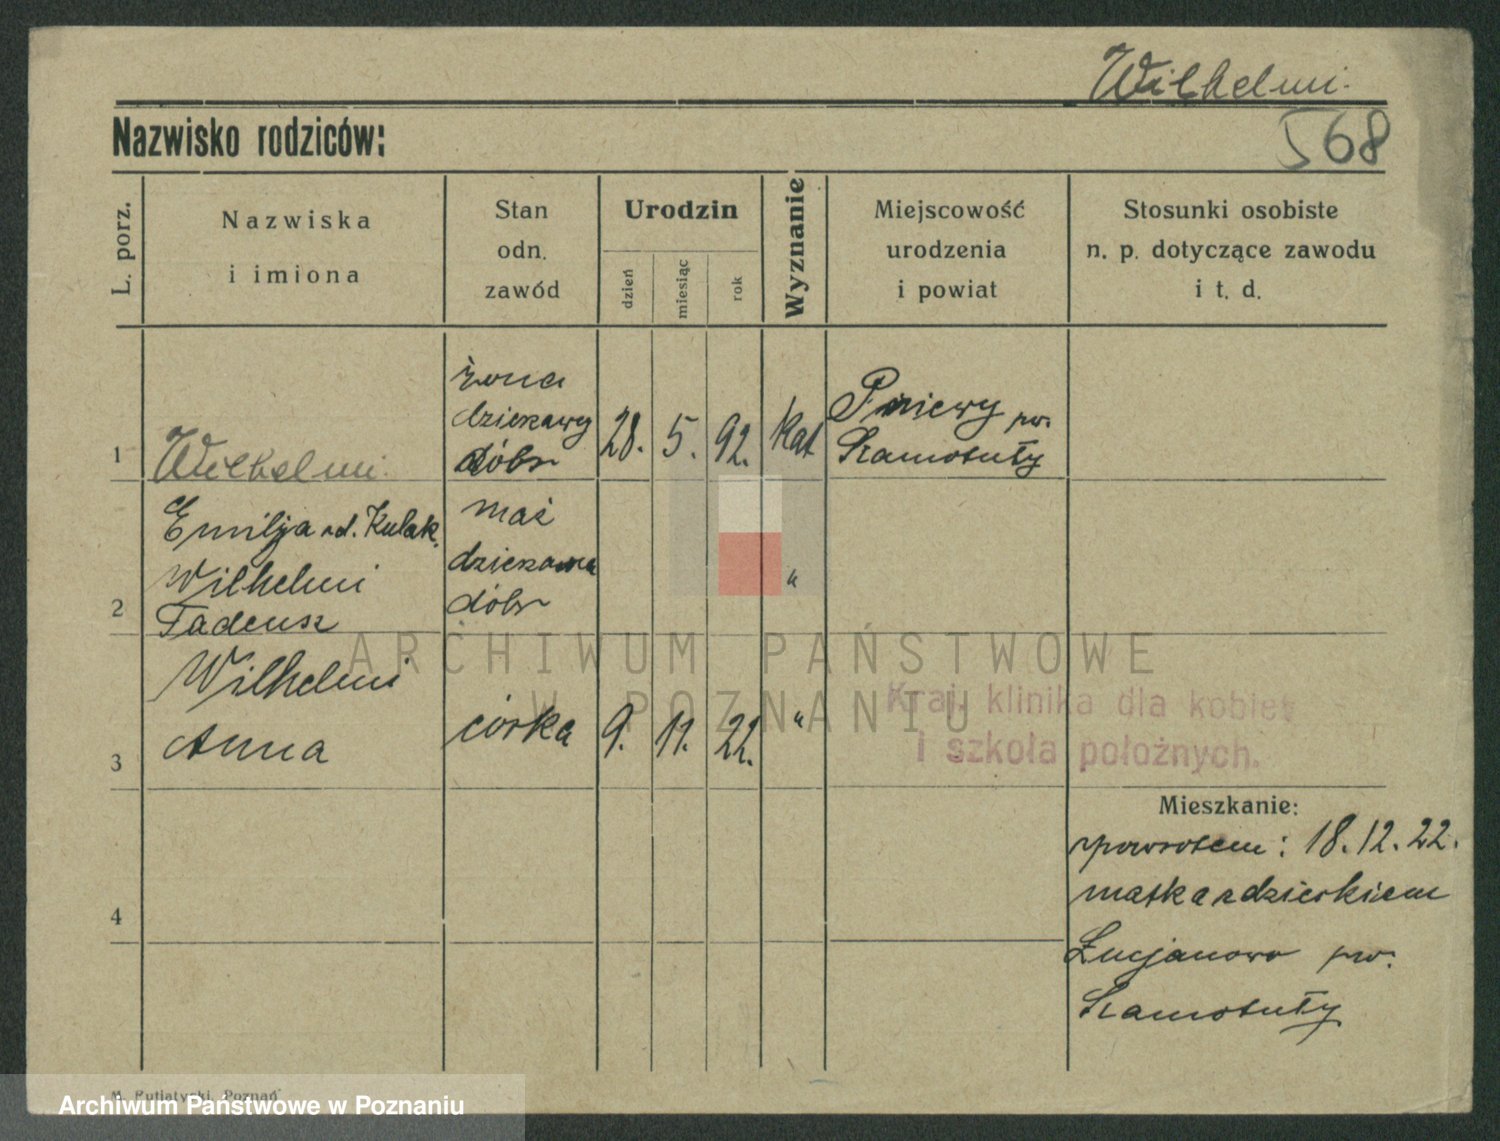 Wilhelmi.
Nazwisko rodziców:
568
L. porz.
Nazwiska
i imiona
Stan
odn.
zawód
Urodzin
dzień
miesiąc
rok
Wyznanie
Miejscowość
urodzenia
i powiat
Stosunki osobiste
n. p. dotyczące zawodu
i t. d.
1
Wilhelmi
żona
dzierżawcy
dóbr
28. 5. 92. kat
Pniewy pw.
Szamotuły
Emilja rd. Kulak.
Wilhelmi
2
Tadeusz
mąż
dzierżawca
dóbr
"
Wilhelmi
3
Anna
córka
9. 11. 22. "
Kraj. klinika dla kobiet
i szkoła położnych.
4
Mieszkanie:
zpowrotem: 18.12.22.
matka z dzieckiem
Lucjanowo pw.
Szamotuły
M. Putiatycki, Poznań
ARCHIWUM PAŃSTWOWE
W POZNANIU
Archiwum Państwowe w Poznaniu